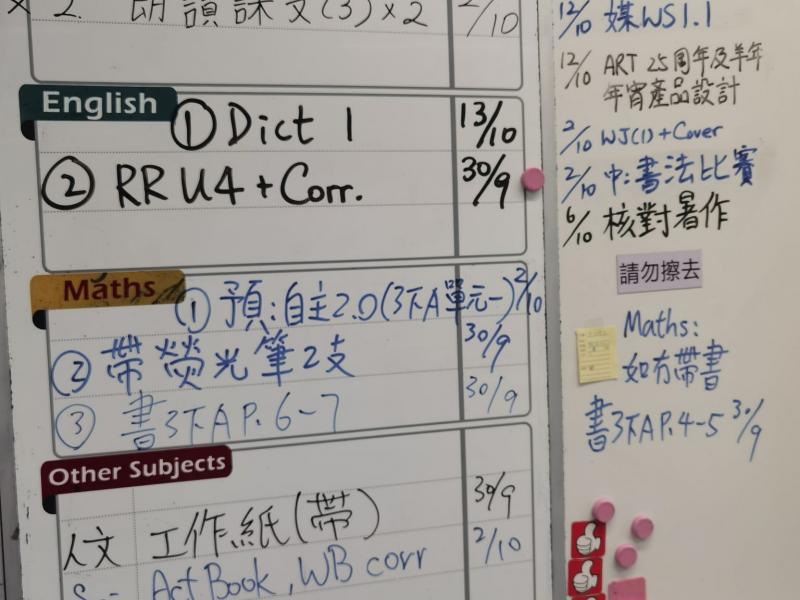 2. 朗讀課文(3)×2 2/10
English
① Dict 1 13/10
② RR U4 + Corr. 30/9
Maths
① 預:自主2.0(3下A單元一) 2/10
② 帶熒光筆2支 30/9
③ 書3下A P.6-7 30/9
Other Subjects
人文 工作紙(帶) 30/9
Act Book, WB corr 2/10
12/10 媒WS1.1
12/10 ART 25周年及羊年
年宵產品設計
2/10 WJ(1)+Cover
2/10 中:書法比賽
6/10 核對暑作
請勿擦去
Maths:
如冇帶書
書3下A P.4-5 30/9